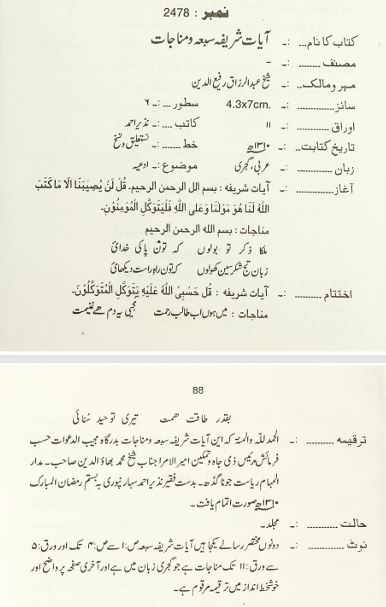 نمبر : 2478
کتاب کا نام... :۔ آیات شریفہ سبعہ و مناجات
مصنف ........ :۔ –
مہر و مالک.. :۔ شیخ عبدالرزاق رفیع الدین
سائز............ :۔ 4.3x7cm. سطور ... :۔ ۶
اوراق .......... :۔ ۱۱ کاتب .... :۔ نذیر احمد
تاریخ کتابت.. :۔ ۱۳۱۰ھ خط ....... :۔ نستعلیق و نسخ
زبان ........... :۔ عربی، گجری موضوع :۔ ادعیہ
آغاز............ :۔ آیات شریفہ : بسم الله الرحمن الرحيم۔ قُلْ لَنْ يُصِيبَنَا الَّا مَا كَتَبَ
اللهُ لَنَا هُوَ مَوْلٰنَا وَعَلى اللهِ فَلْيَتَوَكَّلِ الْمُؤمِنُوْنِ۔
مناجات : بسم الله الرحمن الرحيم
ملکا ذکر تو بولوں کہ توں پاکی خدائی
زبان تج شکر سیں کھولوں کہ توں راہ راست دیکھائی
اختتام ......... :۔ آیات شریفہ : قُل حَسْبِيَ اللهُ عَلَيْهِ يَتَوَكَّلِ الْمُتَوَكِّلُوْنَ۔
مناجات : میں ہوں اب طالب رحمت مجھی یہ دم ھے غنیمت
88
بقدر طاقت ھمت تیری توحید سُنائی
ترقیمہ ......... :۔ الحمدللہ والمنۃ کہ این آیات شریفہ سبعہ و مناجات بدرگاہ مجیب الدعوات حسب
فرمائش رئیس ذی جاہ و تمکین امیر الامرا جناب شیخ محمد بھاؤ الدین صاحب۔ مدار
المہام ریاست جوناگڈھ۔ بدست فقیر نذیر احمد سہارنپوری بہ بستم رمضان المبارک
۱۳۱۰ھ صورت اتمام یافت۔
حالت .......... :۔ مجلد۔
نوٹ ............ :۔ دونوں مختصر رسالے یکجا ہیں آیات شریفہ سبعہ ص:۱ سے ص:۴ تک اور ورق:۵
سے ورق:۱۱ تک مناجات ہے جو گجری زبان میں ہے اور آخری صفحہ پر واضح اور
خوشخط انداز میں ترقیمہ مرقوم ہے۔